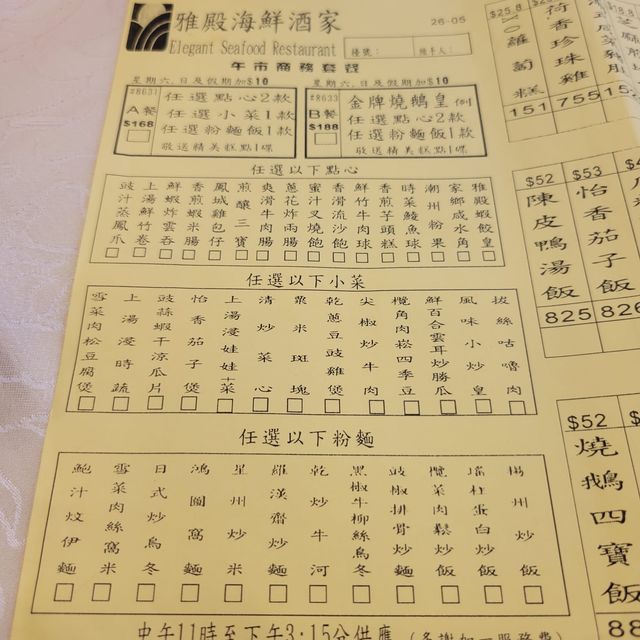 雅殿海鮮酒家
26-05
Elegant Seafood Restaurant
檯號： 經手人：
午市商務套餐
星期六、日及假期加$10
星期六、日及假期加$10
#8631
A餐
$168
任選點心2款
任選小菜1款
任選粉麵飯1款
敬送精美糕點1碟
#8633
B餐
$188
金牌燒鵝皇 例
任選點心2款
任選粉麵飯1款
敬送精美糕點1碟
任選以下點心
豉汁蒸鳳爪
上湯鮮竹卷
鮮蝦炸雲吞
香煎蝦米
鳳城雞包仔
煎釀三寶
爽滑牛腸
蔥花炸兩腸
蜜汁叉燒飽
香滑流沙飽
鮮竹牛肉球
香煎芋頭糕
時菜鯪魚球
潮州粉果
家鄉咸水角
雅殿蝦餃皇
任選以下小菜
雪菜肉松豆腐煲
上湯浸時蔬
豉蒜蝦干涼瓜片
怡香茄子煲
上湯浸娃娃菜
清炒菜心
粟米斑塊
乾蔥豆豉雞煲
尖椒炒牛肉
欖角肉崧四季豆
鮮百合雲耳炒勝瓜
風味小炒皇
拔絲咕嚕肉
任選以下粉麵
鮑汁炆伊麵
雪菜肉絲窩米
日式炒烏冬
鴻圖窩麵
星州炒米
羅漢齋炒麵
乾炒牛河
黑椒牛柳絲烏冬
豉椒排骨炒麵
欖菜肉鬆炒飯
瑤柱蛋白炒飯
揚州炒飯
中午11時至下午3:15分供應
$25.8
XO蘿蔔糕
151
荷香珍珠雞
755
$52
陳皮鴨湯飯
825
$53
怡香茄子飯
826
$52
燒鵝四寶飯